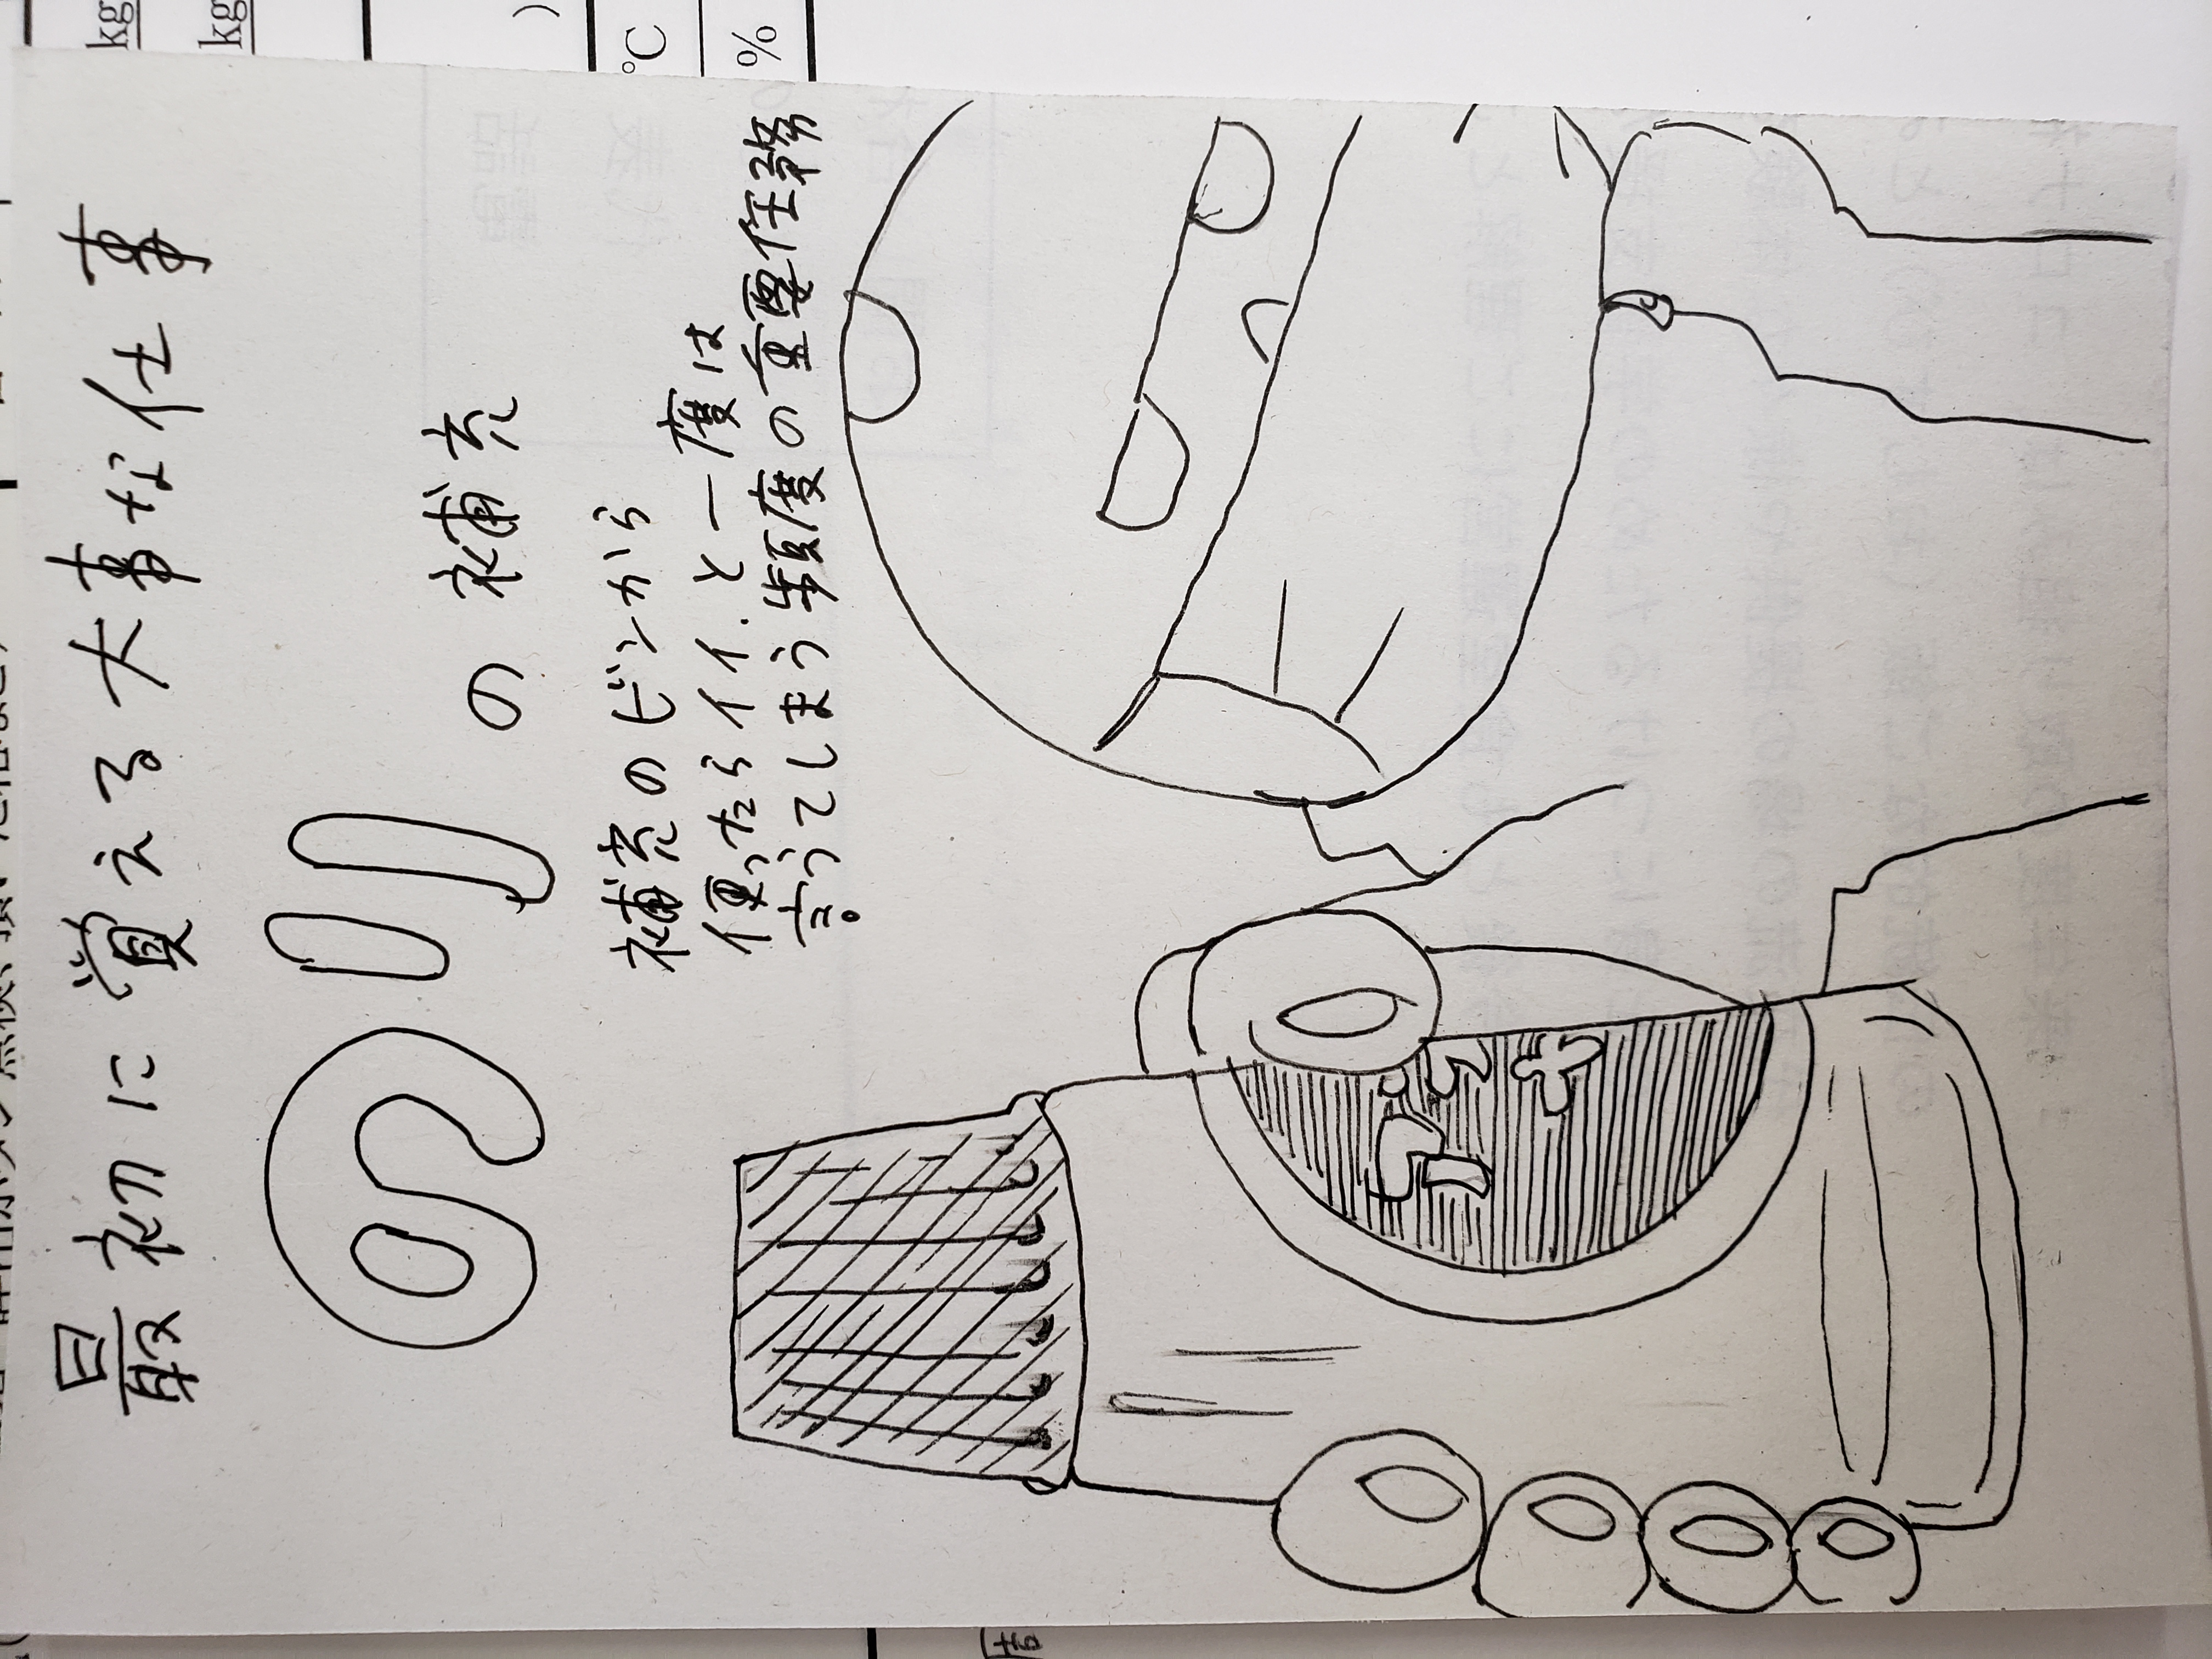 kg
kg
)
℃
%
最初に覚える大事な仕事
のりの補充
補充のビンから
使ったらイイ.と一度は
言ってしまう頻度の重要任務
。